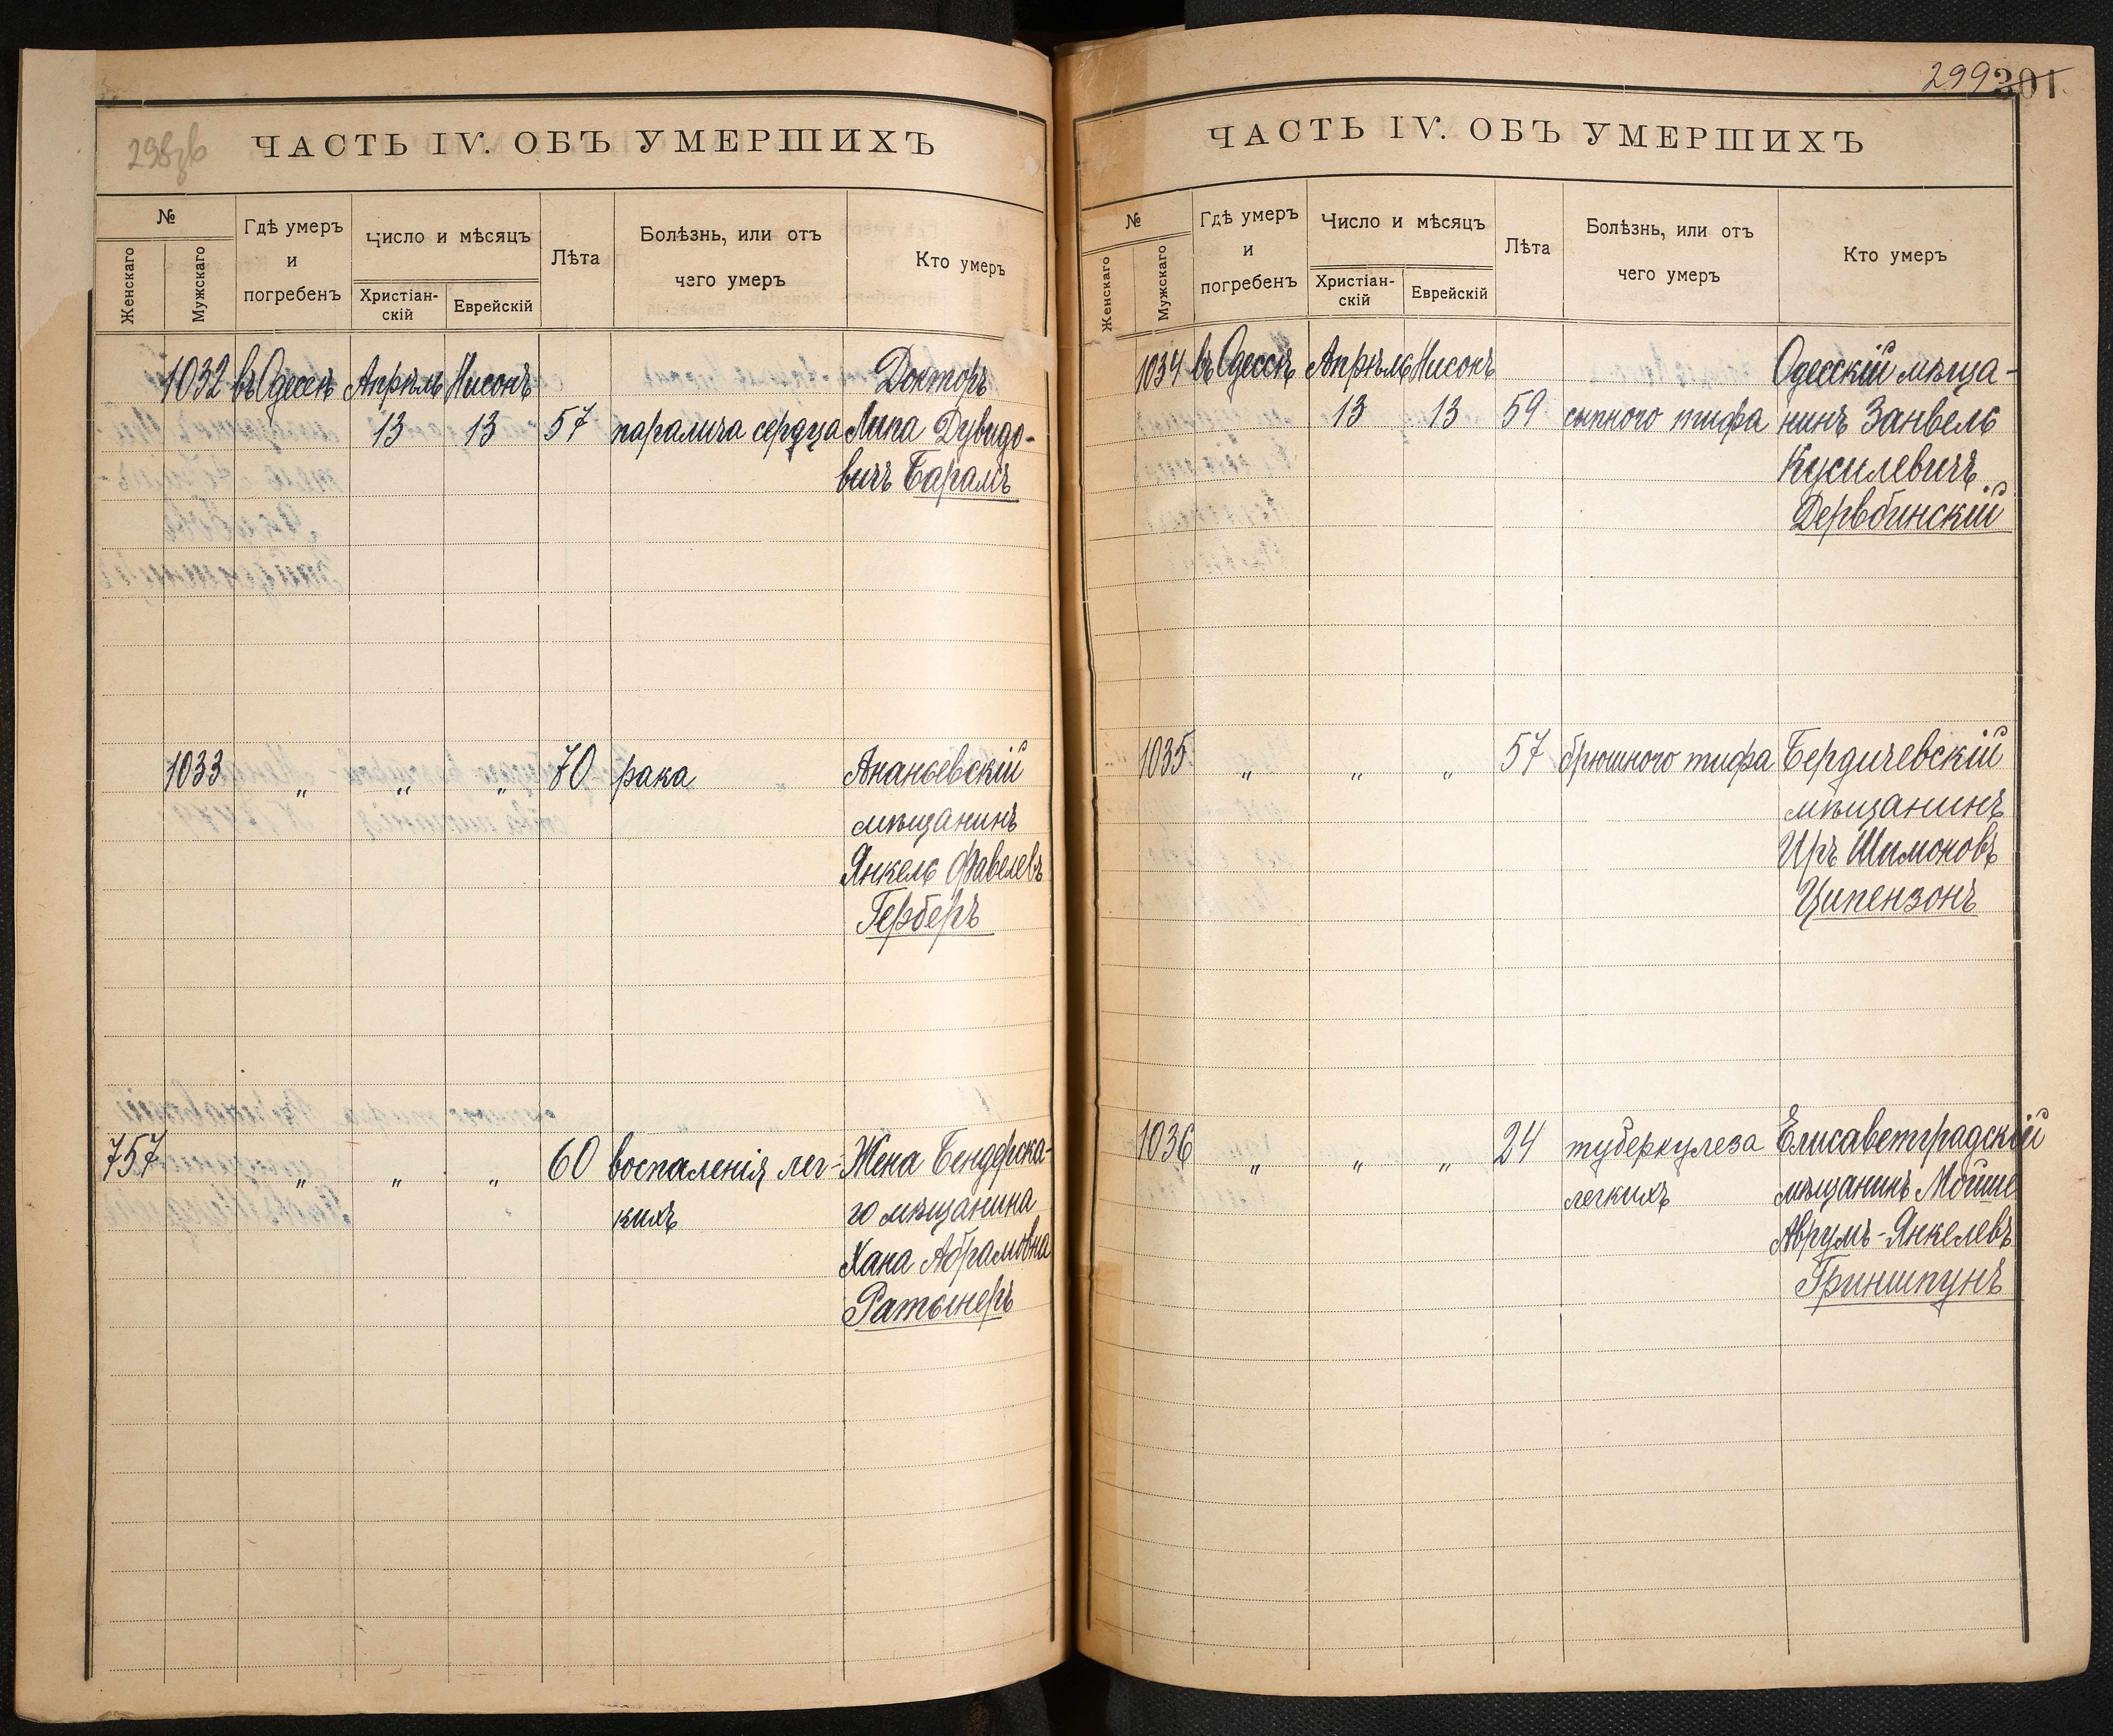 298зв
ЧАСТЬ IV. ОБЪ УМЕРШИХЪ
№
Женскаго
Мужскаго
Гдѣ умеръ
и
погребенъ
Число и мѣсяцъ
Христіан-
скій
Еврейскій
Лѣта
Болѣзнь, или отъ
чего умеръ
Кто умеръ
1032 въ Одессѣ Апрѣль Нисонъ Докторъ
13 13 57 паралича сердца Липа Дувидо-
вичъ Барамъ
1033 „ „ „ 70 рака Ананьевскій
мѣщанинъ
Янкель Файвелевъ
Герберъ
757 „ „ „ 60 воспаленія лег- Жена Бендерска-
кихъ го мѣщанина
Хана Абрамовна
Ратьнеръ
299 301
ЧАСТЬ IV. ОБЪ УМЕРШИХЪ
№
Женскаго
Мужскаго
Гдѣ умеръ
и
погребенъ
Число и мѣсяцъ
Христіан-
скій
Еврейскій
Лѣта
Болѣзнь, или отъ
чего умеръ
Кто умеръ
1034 въ Одессѣ Апрѣль Нисонъ Одесскій мѣща-
13 13 59 сыпного тифа нинъ Занвель
Кусилевичъ
1035 „ „ „ 57 брюшного тифа Бердичевскій
мѣщанинъ
Иръ Шимоновъ
Ципензонъ
1036 „ „ „ 24 туберкулеза Елисаветградскій
легкихъ мѣщанинъ Мойше
Аврумъ-Янкелевъ
Гриншпунъ